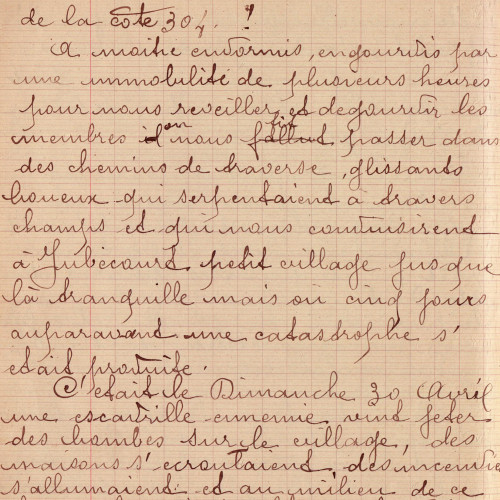 de la côte 304. !
A moitié endormis, engourdis par
une immobilité de plusieurs heures
pour nous reveiller et degourdir les
membres on nous fit passer dans
des chemins de traverse, glissants
boueux qui serpentaient à travers
champs et qui nous conduisirent
à Jubécourt petit village jusque
là tranquille mais où cinq jours
auparavant une catastrophe s'
etait produite.
C'etait le Dimanche 30 Avril
une escadrille ennemie vint jeter
des bombes sur le village, des
maisons s'ecroulaient, des incendies
s'allumaient et au milieu de ce